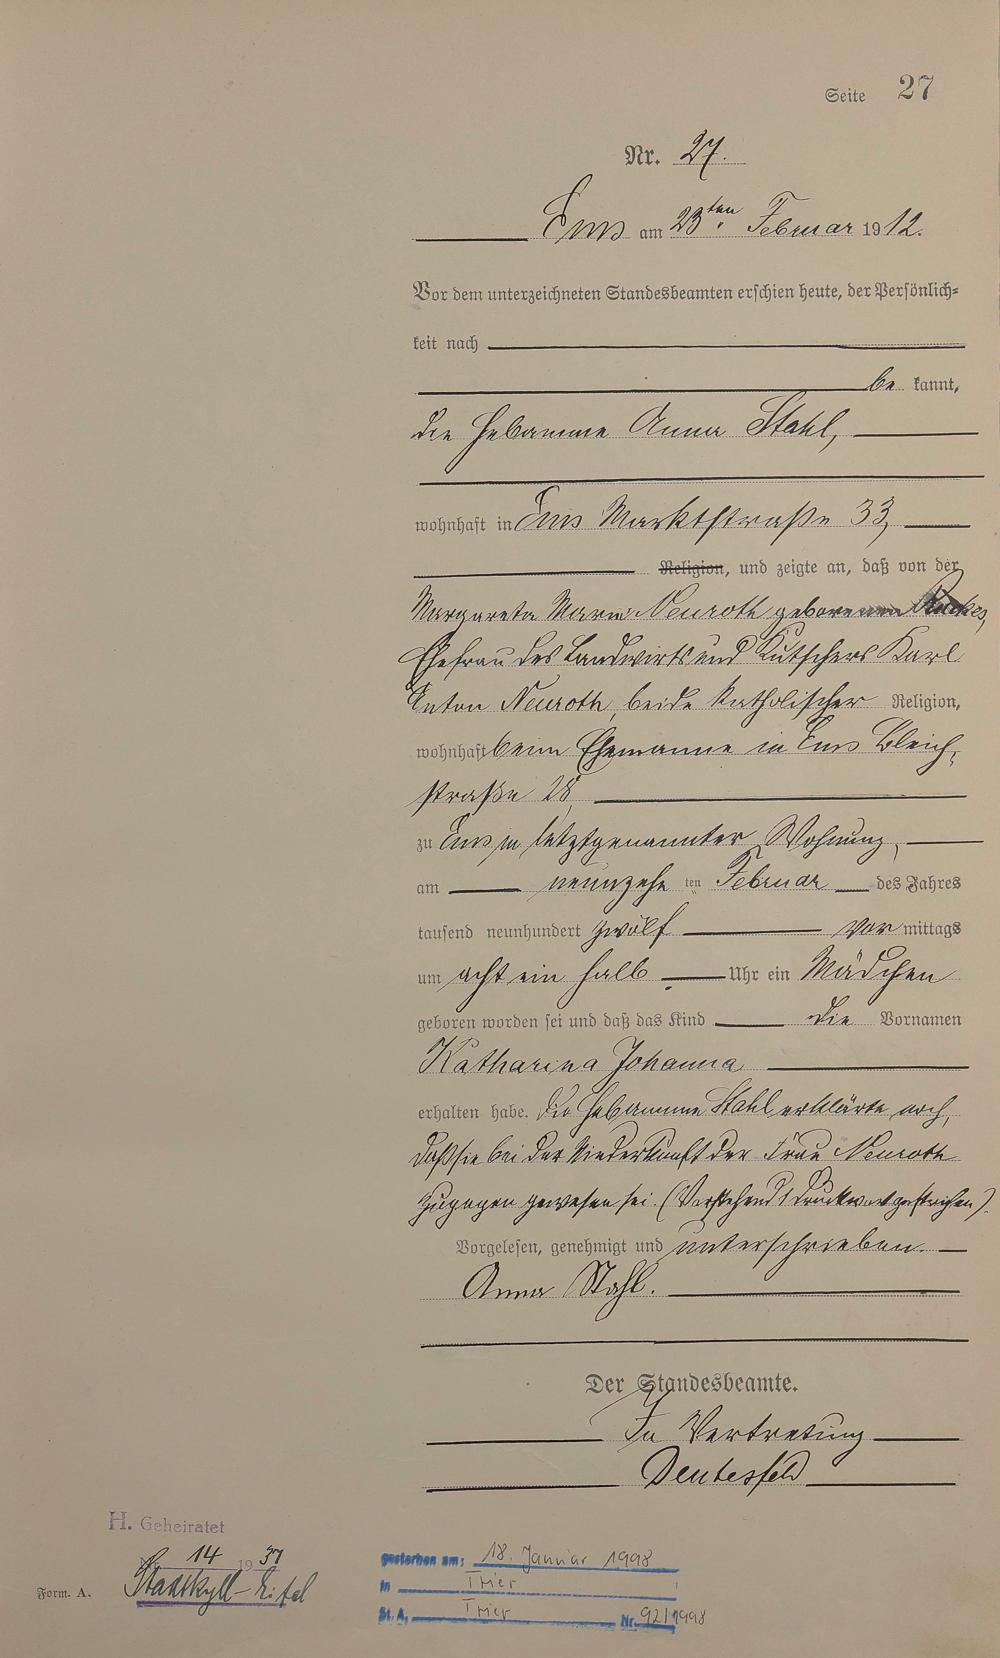 Seite 27
Nr. 27.
Ems am 23ten Februar 1912.
Vor dem unterzeichneten Standesbeamten erschien heute, der Persönlich-
keit nach
be kannt,
die Hebamme Anna Stahl,
wohnhaft in Ems Marktstraße 33,
Religion, und zeigte an, daß von der
Margareta Maria Neuroth geborenen
Ehefrau des Landwirts und Kutschers Karl
Anton Neuroth, beide katholischer Religion,
wohnhaft beim Ehemanne in Ems Bleich-
straße 28,
zu Ems in letztgenannter Wohnung,
am neunzehnten Februar des Jahres
tausend neunhundert zwölf Vormittags
um acht ein halb Uhr ein Mädchen
geboren worden sei und daß das Kind die Vornamen
Katharina Johanna
erhalten habe. Die Hebamme Stahl erklärte noch,
daß sie bei der Niederkunft der Frau Neuroth
zugegen gewesen sei. (Vorstehend 1 Druckwort gestrichen).
Vorgelesen, genehmigt und unterschrieben.
Anna Stahl.
Der Standesbeamte.
In Vertretung
Deutesfeld
H. Geheiratet
Nr. 14 1937
Stadtkyll-Eifel
Form. A.
gestorben am: 18. Januar 1998
in Trier
St. A. Trier Nr. 92/1998